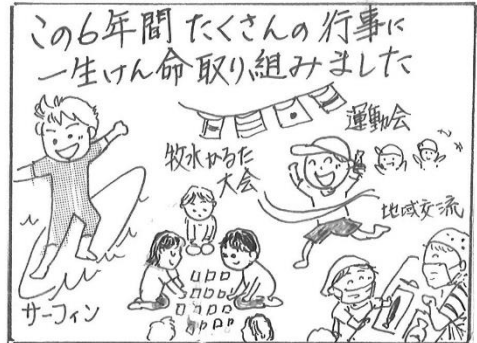 この6年間たくさんの行事に
一生けん命取り組みました
運動会
牧水かるた
大会
地域交流
サーフィン